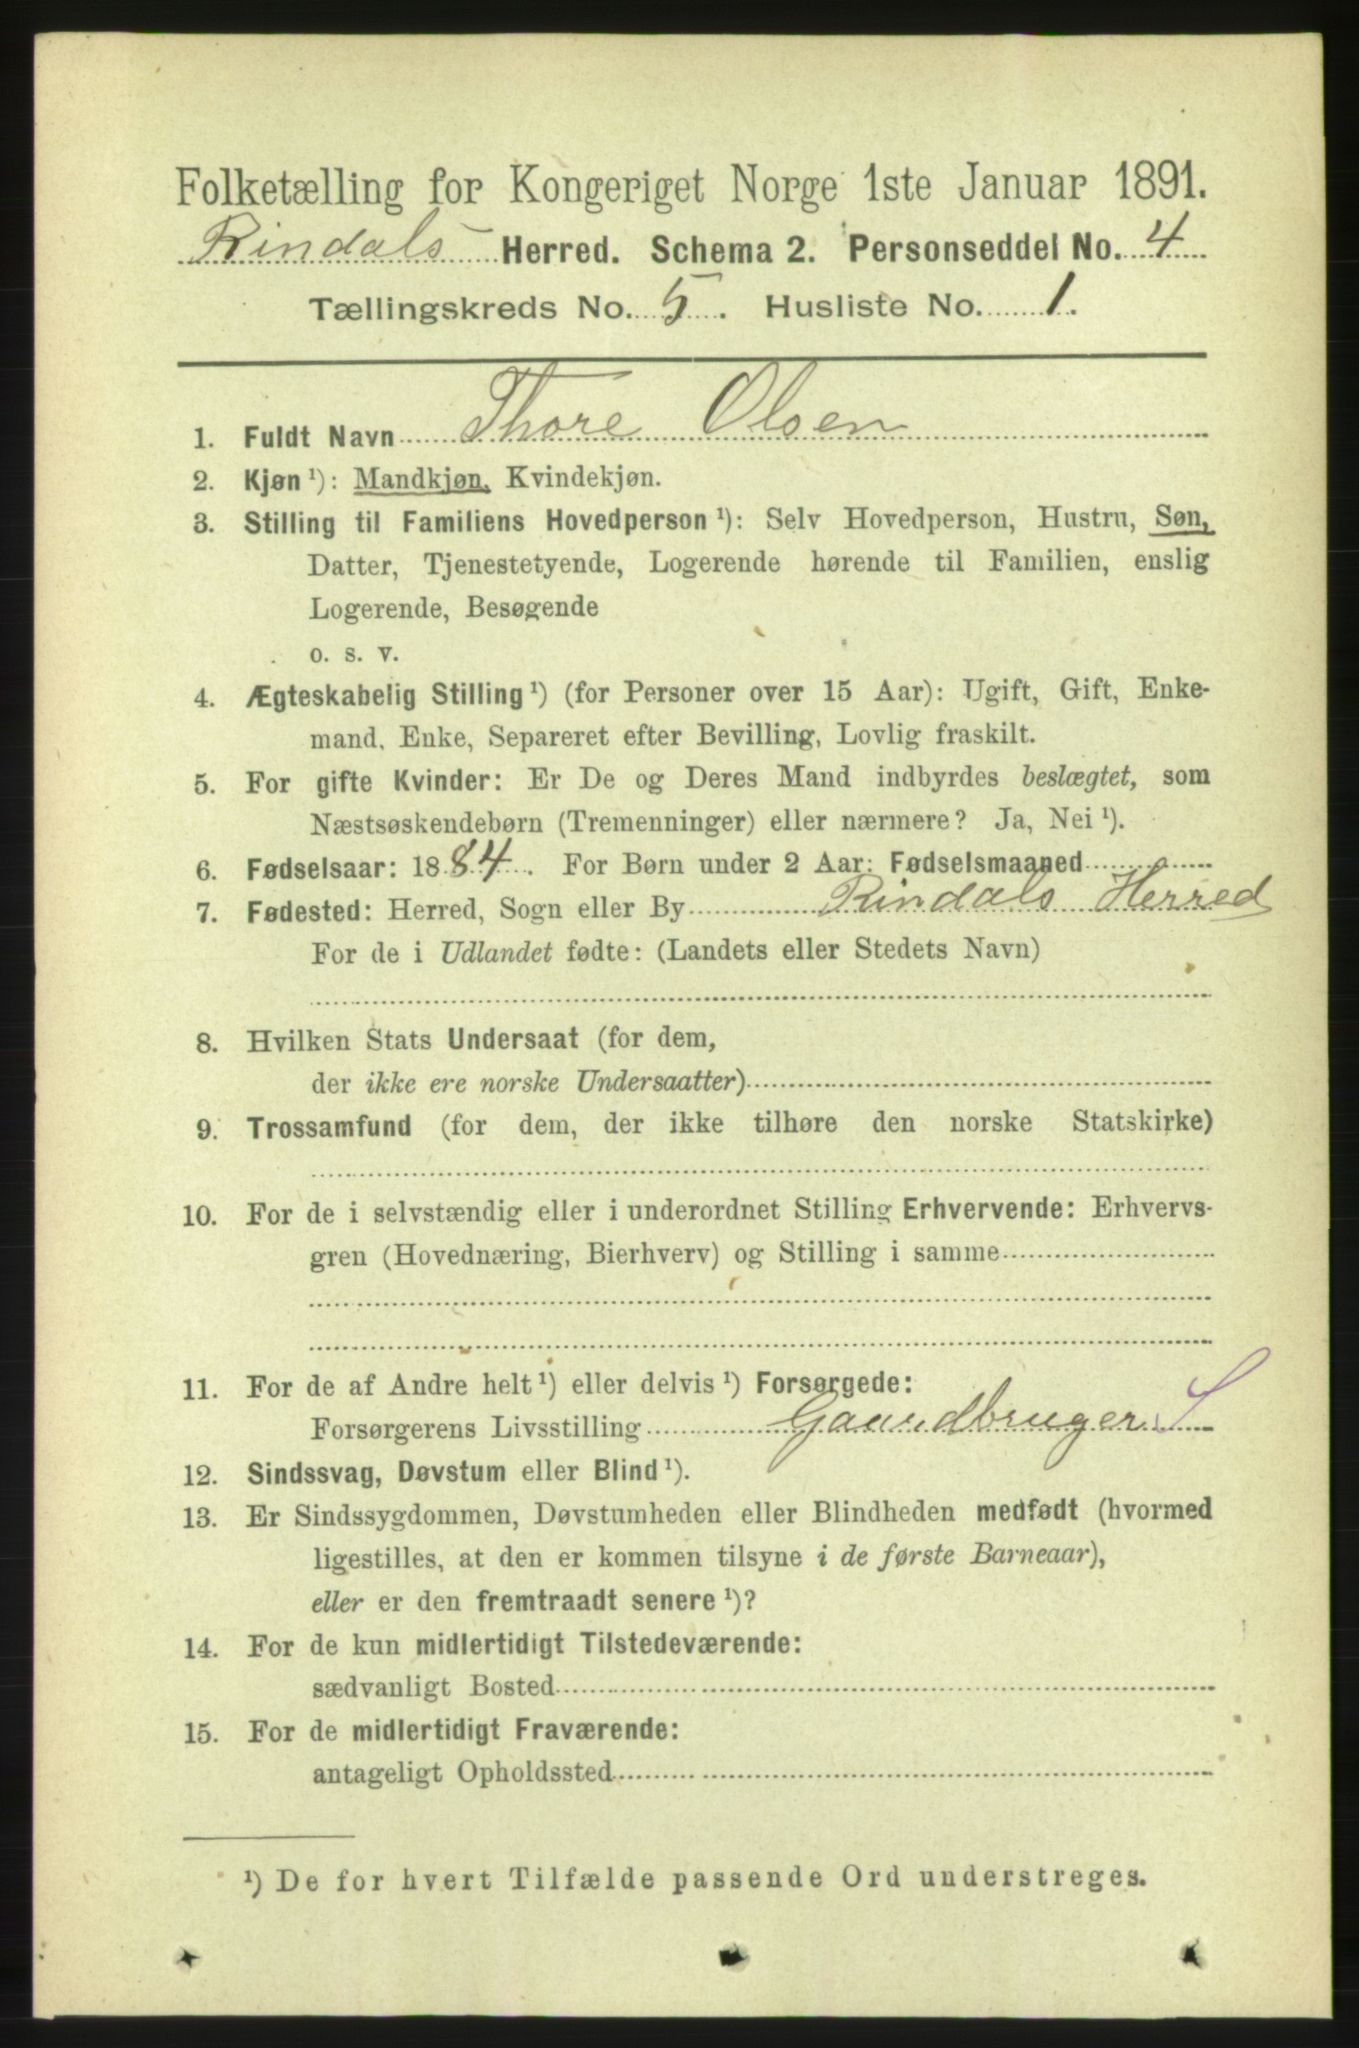 Folketælling for Kongeriget Norge 1ste Januar 1891.
Rindals Herred. Schema 2. Personseddel No. 4
Tællingskreds No. 5. Husliste No. 1.
1. Fuldt Navn Thore Olsen
2. Kjøn ¹): Mandkjøn, Kvindekjøn.
3. Stilling til Familiens Hovedperson ¹): Selv Hovedperson, Hustru, Søn,
Datter, Tjenestetyende, Logerende hørende til Familien, enslig
Logerende, Besøgende
o. s. v.
4. Ægteskabelig Stilling ¹) (for Personer over 15 Aar): Ugift, Gift, Enke-
mand, Enke, Separeret efter Bevilling, Lovlig fraskilt.
5. For gifte Kvinder: Er De og Deres Mand indbyrdes beslægtet, som
Næstsøskendebørn (Tremenninger) eller nærmere? Ja, Nei ¹).
6. Fødselsaar: 1884. For Børn under 2 Aar: Fødselsmaaned
7. Fødested: Herred, Sogn eller By Rindals Herred
For de i Udlandet fødte: (Landets eller Stedets Navn)
8. Hvilken Stats Undersaat (for dem,
der ikke ere norske Undersaatter)
9. Trossamfund (for dem, der ikke tilhøre den norske Statskirke)
10. For de i selvstændig eller i underordnet Stilling Erhvervende: Erhvervs-
gren (Hovednæring, Bierhverv) og Stilling i samme
11. For de af Andre helt ¹) eller delvis ¹) Forsørgede:
Forsørgerens Livsstilling Gaardbruger S
12. Sindssvag, Døvstum eller Blind ¹).
13. Er Sindssygdommen, Døvstumheden eller Blindheden medfødt (hvormed
ligestilles, at den er kommen tilsyne i de første Barneaar),
eller er den fremtraadt senere ¹)?
14. For de kun midlertidigt Tilstedeværende:
sædvanligt Bosted
15. For de midlertidigt Fraværende:
antageligt Opholdssted
¹) De for hvert Tilfælde passende Ord understreges.